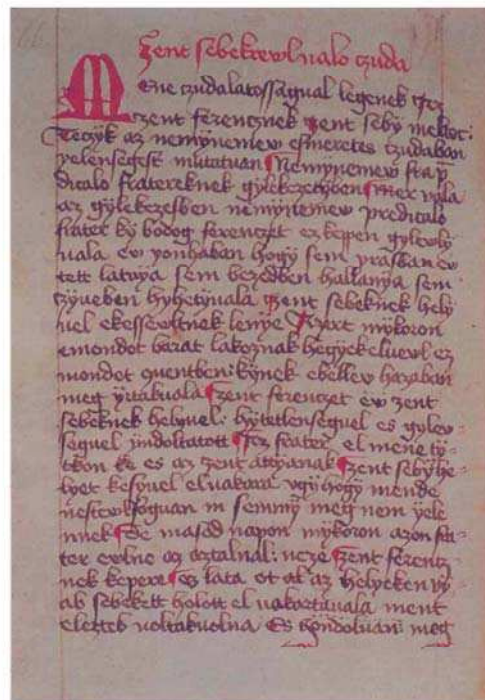 Zent sebekrewlualo czuda
Mene czudalatossagual legenek ez
zent ferencznek zent seby
Teczyk az nemynemew esmeretes czudaban
yelensegest mutatuan Nemynemew
dicalo fratereknek gylekezetyben Mert vala
az gylekezetben nemynemew predicalo
frater ky bodog ferenczet ezkeppen gylewly
uala ew yonhaban hogy sem yrasban ew
tett latnya sem bezedben hallanya sem
zyueben hyhetyuala zent sebeknek hely
uel ekessewltnek lenye Azert mykoron
emondot barat lakoznak ez
mondot kynek ebellew hazaban
meg yrtakuala zent ferenczet ew zent
sebeknek helyuel: hytetlensequel es gylew-
sequel yndoltatott Ez frater el mene ty-
tkon ke es az zent attyanak zent sebyhe-
lyet kesyuel eluakara vgyhogy mende
nestewlfoguan in semmy meg nem yele
nnek De masod napon mykoron azon fra-
ter ewlne az aztalnal: neze zent ferencz
nek kepere es lata ot al az helyeken vy-
ab sebekett holott el uakartauala ment
elezteb voltakuolna Es gondoluan: meg